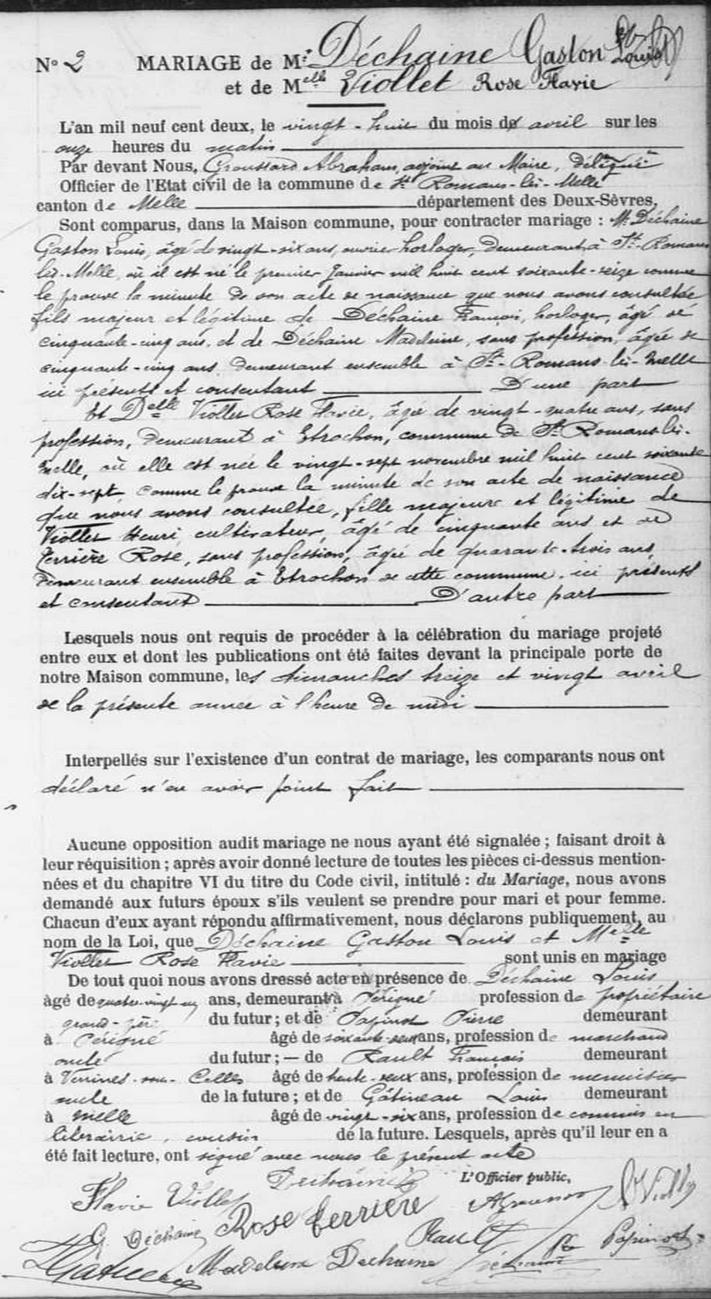 N° 2 MARIAGE de Mr Déchaine Gaston Louis
et de Melle Viollet Rose Flavie
L'an mil neuf cent deux, le vingt-huit du mois de avril sur les
onze heures du matin
Par devant Nous, Groussard Abraham, adjoint au Maire, délégué
Officier de l'Etat civil de la commune de St Romans-lès-Melle
canton de Melle département des Deux-Sèvres,
Sont comparus, dans la Maison commune, pour contracter mariage : Mr Déchaine
Gaston Louis, âgé de vingt-six ans, ouvrier horloger, demeurant à St-Romans
lès-Melle, où il est né le premier Janvier mil huit cent soixante-seize comme
le prouve la minute de son acte de naissance que nous avons consultée
fils majeur et légitime de Déchaine François, horloger, âgé de
cinquante-cinq ans, et de Déchaine Madeleine, sans profession, âgée de
cinquante-cinq ans demeurant ensemble à St-Romans-lès-Melle
ici présents et consentant D'une part
Et Delle Viollet Rose Flavie, âgée de vingt-quatre ans, sans
profession, demeurant à Etrochon, commune de St Romans-lès-
Melle, où elle est née le vingt-sept novembre mil huit cent soixante
dix-sept, comme le prouve la minute de son acte de naissance
que nous avons consultée, fille majeure et légitime de
Viollet Henri, cultivateur, âgé de cinquante ans et de
Ferrière Rose, sans profession, âgée de quarante-trois ans,
demeurant ensemble à Etrochon de cette commune, ici présents
et consentant D'autre part
Lesquels nous ont requis de procéder à la célébration du mariage projeté
entre eux et dont les publications ont été faites devant la principale porte de
notre Maison commune, les dimanches treize et vingt avril
de la présente année à l'heure de midi
Interpellés sur l'existence d'un contrat de mariage, les comparants nous ont
déclaré n'en avoir point fait
Aucune opposition audit mariage ne nous ayant été signalée ; faisant droit à
leur réquisition ; après avoir donné lecture de toutes les pièces ci-dessus mention-
nées et du chapitre VI du titre du Code civil, intitulé : du Mariage, nous avons
demandé aux futurs époux s'ils veulent se prendre pour mari et pour femme.
Chacun d'eux ayant répondu affirmativement, nous déclarons publiquement, au
nom de la Loi, que Déchaine Gaston Louis et Melle
Viollet Rose Flavie sont unis en mariage
De tout quoi nous avons dressé acte en présence de Déchaine Louis
âgé de quatre-vingt un ans, demeurant à Périgné profession de propriétaire
grand-père du futur ; et de Papinot Pierre demeurant
à Périgné âgé de soixante-deux ans, profession de marchand
oncle du futur ; — de Rault François demeurant
à Verrines-sous-Celles âgé de trente-deux ans, profession de menuisier
oncle de la future ; et de Gâtineau Louis demeurant
à Melle âgé de vingt-six ans, profession de commis en
librairie, cousin de la future. Lesquels, après qu'il leur en a
été fait lecture, ont signé avec nous le présent acte
L'Officier public,
Flavie Viollet Dechaine
G. Déchaine Rose Ferrière Rault Papinot
Madeleine Dechaine